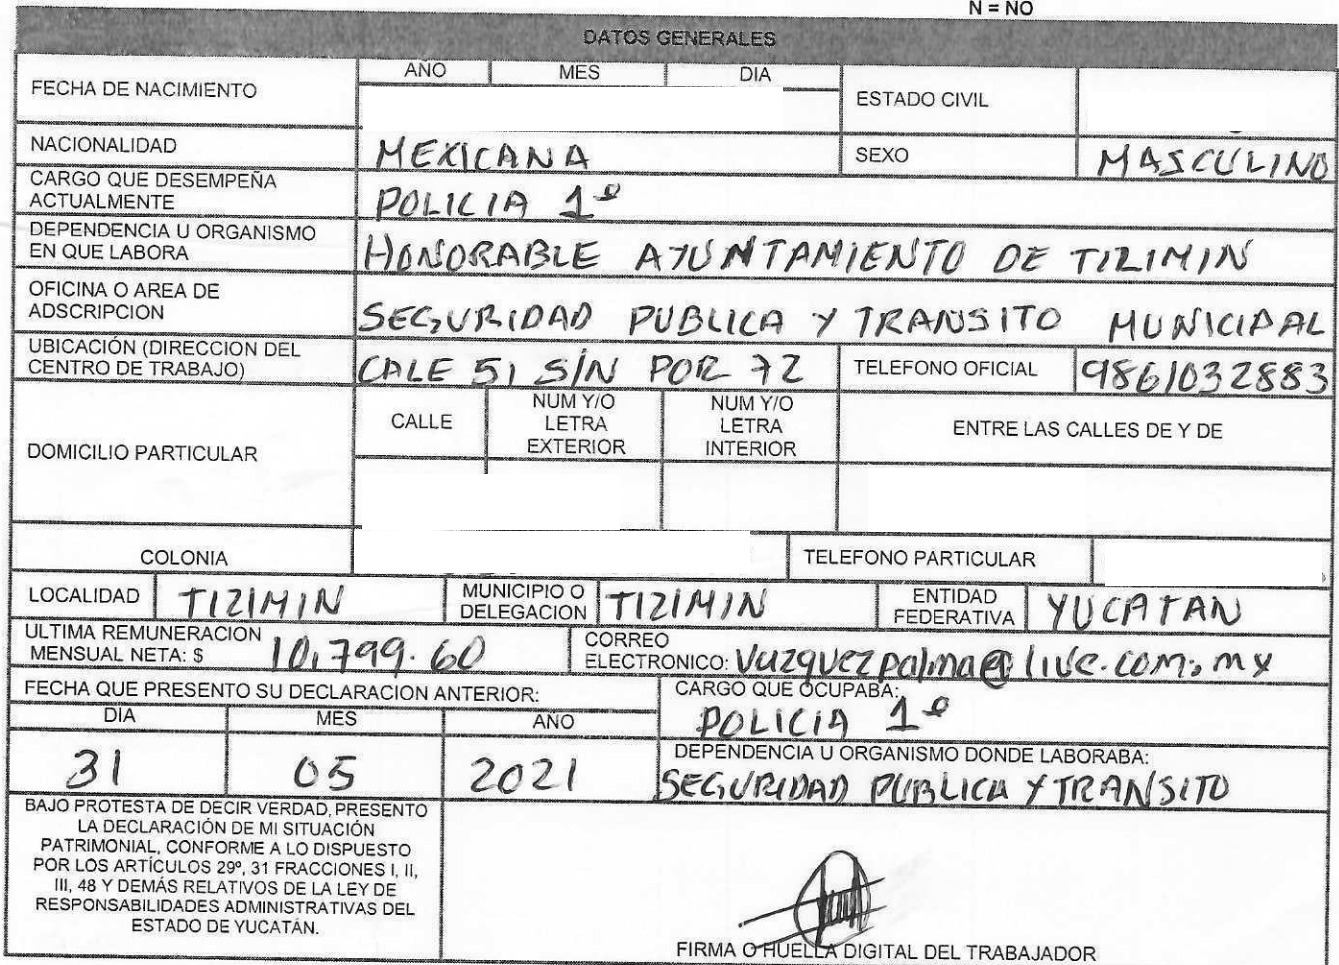 N = NO
DATOS GENERALES
FECHA DE NACIMIENTO
AÑO MES DIA
ESTADO CIVIL
NACIONALIDAD MEXICANA SEXO MASCULINO
CARGO QUE DESEMPEÑA
ACTUALMENTE
POLICIA 1º
DEPENDENCIA U ORGANISMO
EN QUE LABORA
HONORABLE AYUNTAMIENTO DE TIZIMIN
OFICINA O AREA DE
ADSCRIPCION
SEGURIDAD PUBLICA Y TRANSITO MUNICIPAL
UBICACIÓN (DIRECCION DEL
CENTRO DE TRABAJO)
CALE 51 S/N POR 72
TELEFONO OFICIAL 9861032883
DOMICILIO PARTICULAR
CALLE
NUM Y/O
LETRA
EXTERIOR
NUM Y/O
LETRA
INTERIOR
ENTRE LAS CALLES DE Y DE
COLONIA
TELEFONO PARTICULAR
LOCALIDAD TIZIMIN
MUNICIPIO O
DELEGACION
TIZIMIN
ENTIDAD
FEDERATIVA
YUCATAN
ULTIMA REMUNERACION
MENSUAL NETA: $ 10,799.60
CORREO
ELECTRONICO: Vazquezpalma@live.com.mx
FECHA QUE PRESENTO SU DECLARACION ANTERIOR:
DIA MES AÑO
31 05 2021
CARGO QUE OCUPABA:
POLICIA 1º
DEPENDENCIA U ORGANISMO DONDE LABORABA:
SEGURIDAD PUBLICA Y TRANSITO
BAJO PROTESTA DE DECIR VERDAD, PRESENTO
LA DECLARACIÓN DE MI SITUACIÓN
PATRIMONIAL, CONFORME A LO DISPUESTO
POR LOS ARTÍCULOS 29º, 31 FRACCIONES I, II,
III, 48 Y DEMÁS RELATIVOS DE LA LEY DE
RESPONSABILIDADES ADMINISTRATIVAS DEL
ESTADO DE YUCATÁN.
FIRMA O HUELLA DIGITAL DEL TRABAJADOR